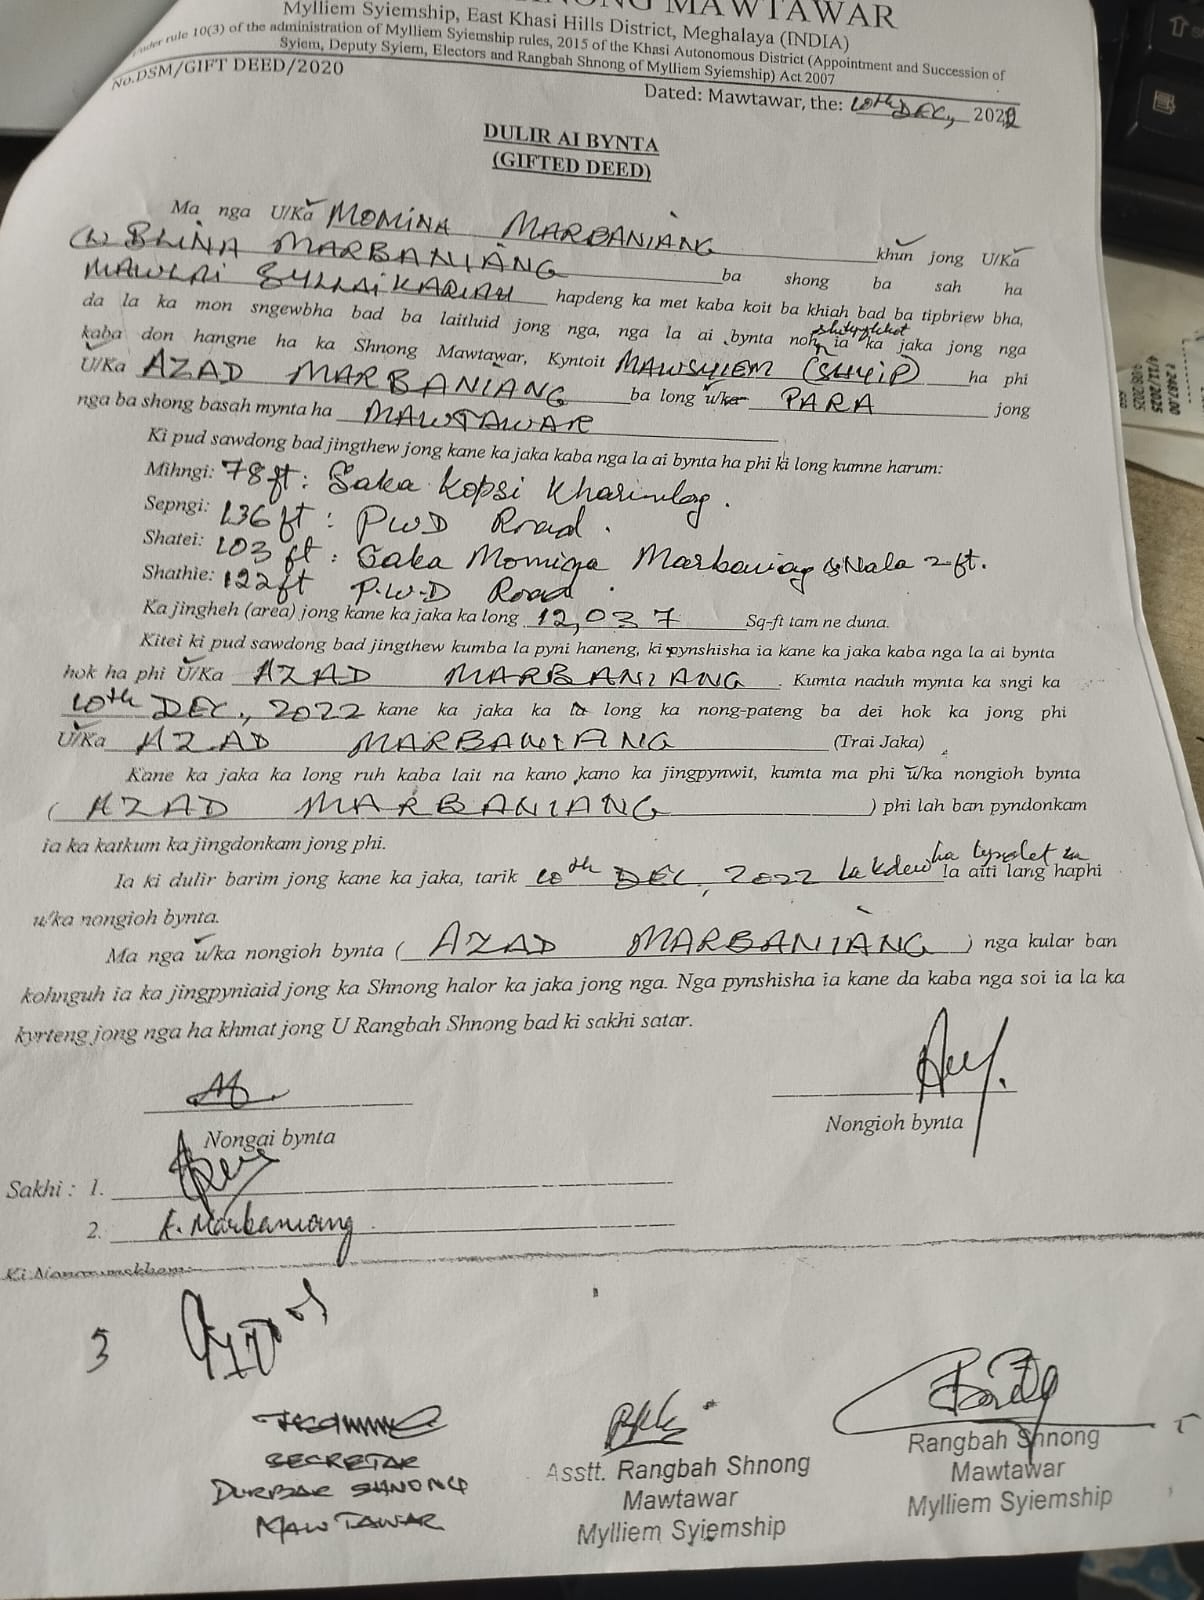 MAWTAWAR
Mylliem Syiemship, East Khasi Hills District, Meghalaya (INDIA)
under rule 10(3) of the administration of Mylliem Syiemship rules, 2015 of the Khasi Autonomous District (Appointment and Succession of
Syiem, Deputy Syiem, Electors and Rangbah Shnong of Mylliem Syiemship) Act 2007
No.DSM/GIFT DEED/2020
Dated: Mawtawar, the: 10th DEC, 2022
DULIR AI BYNTA
(GIFTED DEED)
Ma nga U/Ka MOMINA MARBANIANG
(L) BLINA MARBANIANG khun jong U/Ka
MAWLAI ba shong ba sah ha
hapdeng ka met kaba koit ba khiah bad ba tipbriew bha,
da la ka mon sngewbha bad ba laitluid jong nga, nga la ai bynta noh ia ka jaka jong nga
kaba don hangne ha ka Shnong Mawtawar, Kyntoit MAWSYIEM (SHYIP) ha phi
U/Ka AZAD MARBANIANG ba long u/ka PARA jong
nga ba shong basah mynta ha MAWTAWAR
Ki pud sawdong bad jingthew jong kane ka jaka kaba nga la ai bynta ha phi ki long kumne harum:
Mihngi: 78ft: Saka Kopsi
Sepngi: 136ft: PWD Road.
Shatei: 103 ft: Saka Momina Marbaniang & Nala 2ft.
Shathie: 122ft P.W.D Road.
Ka jingheh (area) jong kane ka jaka ka long 12,037 Sq-ft tam ne duna.
Kitei ki pud sawdong bad jingthew kumba la pyni haneng, ki pynshisha ia kane ka jaka kaba nga la ai bynta
hok ha phi U/Ka AZAD MARBANIANG. Kumta naduh mynta ka sngi ka
10th DEC., 2022 kane ka jaka ka la long ka nong-pateng ba dei hok ka jong phi
U/Ka AZAD MARBANIANG (Trai Jaka)
Kane ka jaka ka long ruh kaba lait na kano kano ka jingpynwit, kumta ma phi u/ka nongioh bynta
(AZAD MARBANIANG) phi lah ban pyndonkam
ia ka katkum ka jingdonkam jong phi.
Ia ki dulir barim jong kane ka jaka, tarik 10th DEC, 2022 la kdew ha la aiti lang haphi
u/ka nongioh bynta.
Ma nga u/ka nongioh bynta (AZAD MARBANIANG) nga kular ban
kohnguh ia ka jingpyniaid jong ka Shnong halor ka jaka jong nga. Nga pynshisha ia kane da kaba nga soi ia la ka
kyrteng jong nga ha khmat jong U Rangbah Shnong bad ki sakhi satar.
Nongai bynta
Nongioh bynta
Sakhi : 1.
2. K. Marbaniang
3
SECRETAR
DURBAR SHNONG
MAWTAWAR
Asstt. Rangbah Shnong
Mawtawar
Mylliem Syiemship
Rangbah Shnong
Mawtawar
Mylliem Syiemship
2487.00
4/11/2025